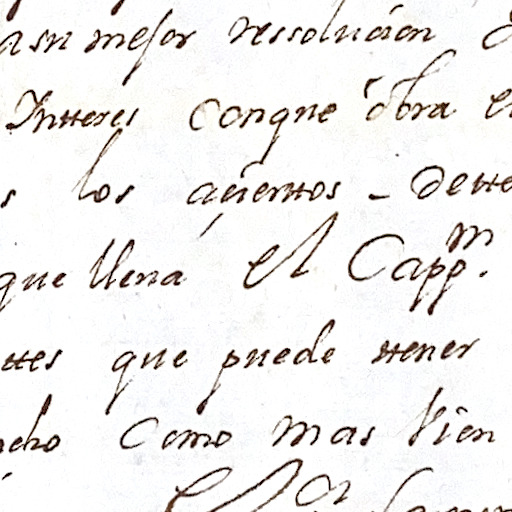 a su mejor ressoluçion
Yntteres conque obra e
s los açientos - dette
que lleua el Capp.m
ttes que puede ttener
cho como mas bien